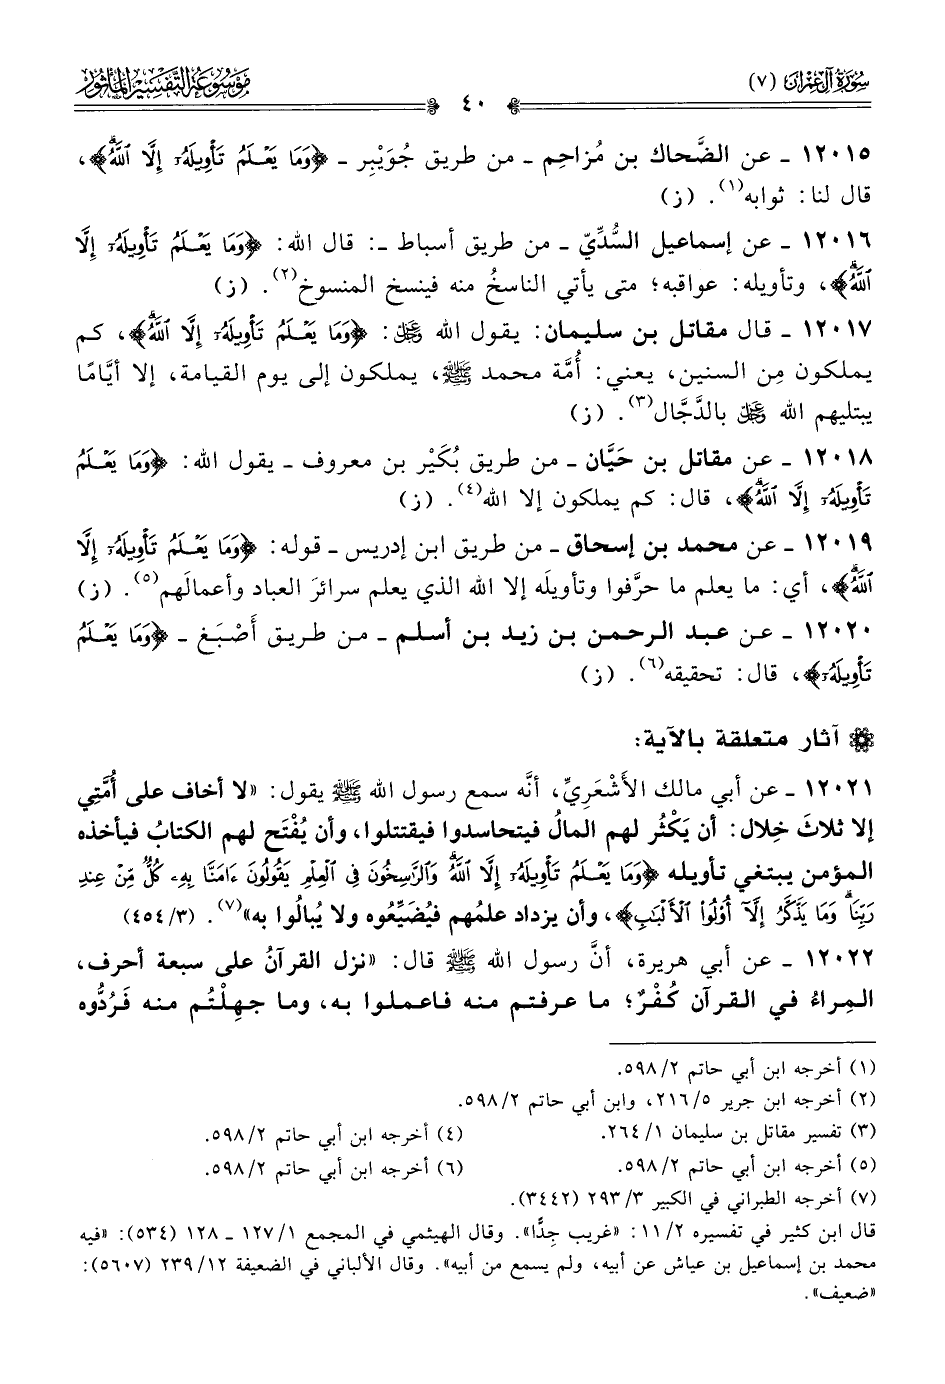 سُورَةُ آلِ عِمْرَان (٧)
٤٠
مَوْسُوعَةُ التَّفْسِيرِ المَأْثُورِ
١٢٠١٥ ـ عن الضَّحاك بن مُزاحِم ـ من طريق جُوَيْبِر ـ ﴿وَمَا يَعْلَمُ تَأْوِيلَهُۥٓ إِلَّا ٱللَّهُۗ﴾،
قال لنا: ثوابه(١). (ز)
١٢٠١٦ ـ عن إسماعيل السُّدِّيّ ـ من طريق أسباط ـ: قال الله: ﴿وَمَا يَعْلَمُ تَأْوِيلَهُۥٓ إِلَّا
ٱللَّهُۗ﴾، وتأويله: عواقبه؛ متى يأتي الناسخُ منه فينسخ المنسوخ(٢). (ز)
١٢٠١٧ ـ قال مقاتل بن سليمان: يقول الله ﷿: ﴿وَمَا يَعْلَمُ تَأْوِيلَهُۥٓ إِلَّا ٱللَّهُۗ﴾، كم
يملكون مِن السنين، يعني: أُمَّة محمد ﷺ، يملكون إلى يوم القيامة، إلا أيَّامًا
يبتليهم الله ﷿ بالدَّجَّال(٣). (ز)
١٢٠١٨ ـ عن مقاتل بن حَيَّان ـ من طريق بُكَيْر بن معروف ـ يقول الله: ﴿وَمَا يَعْلَمُ
تَأْوِيلَهُۥٓ إِلَّا ٱللَّهُۗ﴾، قال: كم يملكون إلا الله(٤). (ز)
١٢٠١٩ ـ عن محمد بن إسحاق ـ من طريق ابن إدريس ـ قوله: ﴿وَمَا يَعْلَمُ تَأْوِيلَهُۥٓ إِلَّا
ٱللَّهُۗ﴾، أي: ما يعلم ما حرَّفوا وتأويلَه إلا الله الذي يعلم سرائرَ العباد وأعمالَهم(٥). (ز)
١٢٠٢٠ ـ عن عبد الرحمن بن زيد بن أسلم ـ من طريق أَصْبَغ ـ ﴿وَمَا يَعْلَمُ
تَأْوِيلَهُۥٓ﴾، قال: تحقيقه(٦). (ز)
آثار متعلقة بالآية:
١٢٠٢١ ـ عن أبي مالك الأَشْعَرِيِّ، أنَّه سمع رسول الله ﷺ يقول: «لا أخاف على أُمَّتِي
إلا ثلاثَ خِلال: أن يَكْثُر لهم المالُ فيتحاسدوا فيقتتلوا، وأن يُفْتَح لهم الكتابُ فيأخذه
المؤمن يبتغي تأويله ﴿وَمَا يَعْلَمُ تَأْوِيلَهُۥٓ إِلَّا ٱللَّهُۗ وَٱلرَّٰسِخُونَ فِى ٱلْعِلْمِ يَقُولُونَ ءَامَنَّا بِهِۦ كُلٌّ مِّنْ عِندِ
رَبِّنَاۗ وَمَا يَذَّكَّرُ إِلَّآ أُو۟لُوا۟ ٱلْأَلْبَٰبِ﴾، وأن يزداد علمُهم فيُضَيِّعُوه ولا يُبالُوا به»(٧). (٤٥٤/٣)
١٢٠٢٢ ـ عن أبي هريرة، أنَّ رسول الله ﷺ قال: «نزل القرآنُ على سبعة أحرف،
المِراءُ في القرآن كُفْرٌ؛ ما عرفتم منه فاعملوا به، وما جهِلْتُم منه فَرُدُّوه
(١) أخرجه ابن أبي حاتم ٥٩٨/٢.
(٢) أخرجه ابن جرير ٢١٦/٥، وابن أبي حاتم ٥٩٨/٢.
(٣) تفسير مقاتل بن سليمان ٢٦٤/١.
(٤) أخرجه ابن أبي حاتم ٥٩٨/٢.
(٥) أخرجه ابن أبي حاتم ٥٩٨/٢.
(٦) أخرجه ابن أبي حاتم ٥٩٨/٢.
(٧) أخرجه الطبراني في الكبير ٢٩٣/٣ (٣٤٤٢).
قال ابن كثير في تفسيره ١١/٢: «غريب جِدًّا». وقال الهيثمي في المجمع ١٢٧/١ ـ ١٢٨ (٥٣٤): «فيه
محمد بن إسماعيل بن عياش عن أبيه، ولم يسمع من أبيه». وقال الألباني في الضعيفة ٢٣٩/١٢ (٥٦٠٧):
«ضعيف».